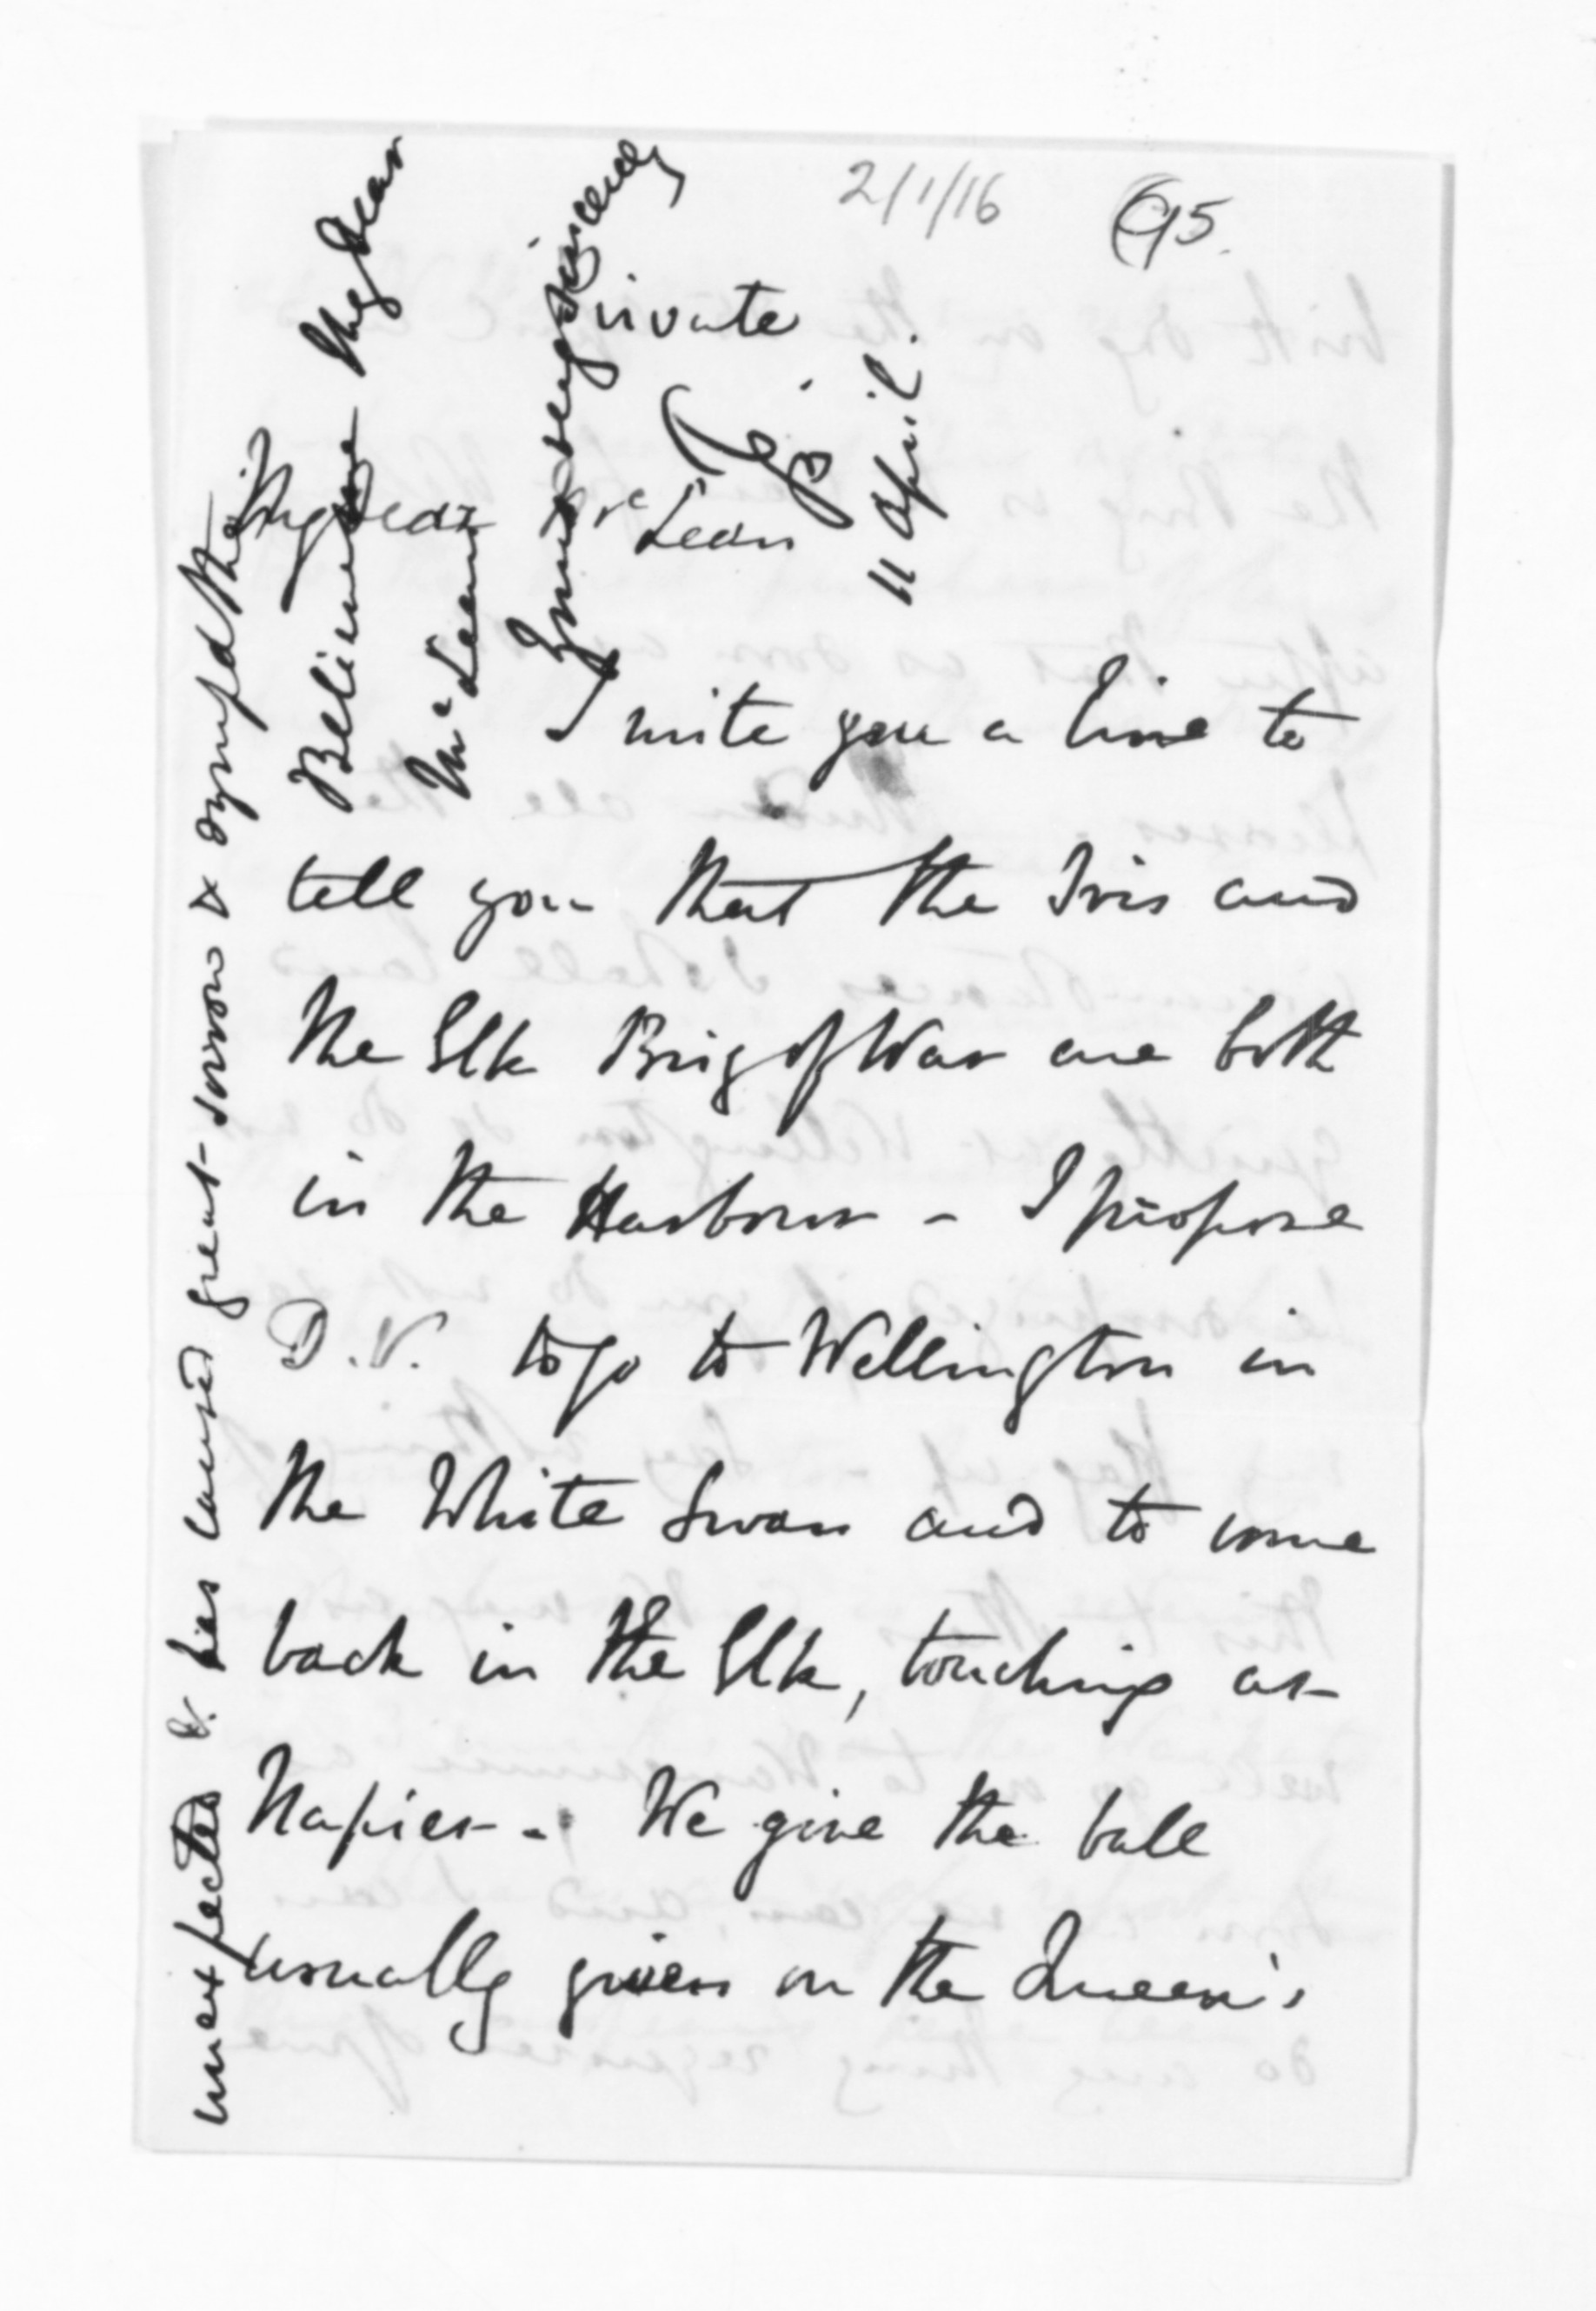 2/1/16
95
Private
My dear McLean
I write you a line to
tell you that the Iris and
the Elk Brig of War are both
in the Harbour - I propose
D.V. to go to Wellington in
the White Swan and to come
back in the Elk, touching at
Napier -. We give the ball
usually given on the Queen's
unexpected & has caused great sorrow & sympathy
Believe me My dear
McLean
Yours very sincerely
TGB
11 April.